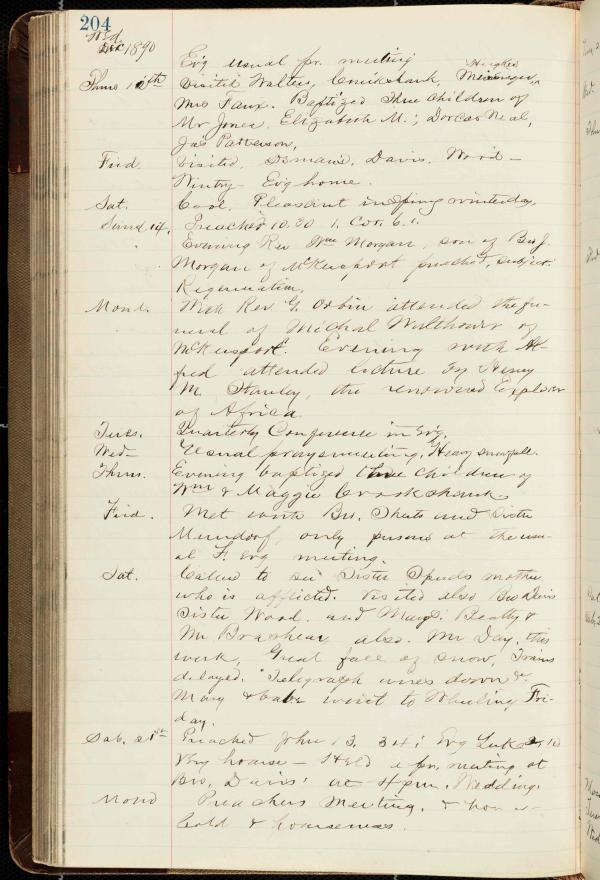 204
Wed
Dec 1890
Ev'g usual pr. meeting
Thurs 11th Visited Walters, Cruikshank, Hughes
Mrs Faux. Baptized Three Children of
Mr Jones. Elizabeth M.; Dorcas Neal,
Jas Patterson,
Frid. Visited, Davis. Wood—
Wintry— Ev'g home.
Sat. Cool. Pleasant winterday
Sund 14. Preached 10.30 1. Cor. 6.1.
Evening Rev. Wm Morgan, son of Bro J.
Morgan of McKeesport preached, subject.
Regeneration.
Mond. With Rev. G. Orbin attended the fu-
neral of Michal Walthour of
McKeesport. Evening with Al-
fred attended lecture by Henry
M. Stanley, the renowned Explorer
of Africa
Tues. Quarterly Conference in Ev'g.
Wed— Usual prayermeeting, Heavy snowfall.
Thurs. Evening baptized three Children of
Wm & Maggie Crookshank.
Frid. Met with Bro. Sheets and Sister
Mundorf, only persons at the usu-
al F. Evg meeting.
Sat. Called to see Sister Spuds mother,
who is afflicted. Visited also Bro Davis
Sister Wood. and Beatty &
Mr Brashear also. Mr Day, this
week, Great fall of snow, Trains
delayed. Telegraph wires down &.
Mary & babe went to Wheeling Fri-
day.
Sab. 21st Preached John 13. 34; Evg Luke 2, 10
Very hoarse— Held a pr. meeting at
Bro. Davis' at 4 pm. Wedding.
Mond Preachers Meeting. &
Cold & hoarseness.